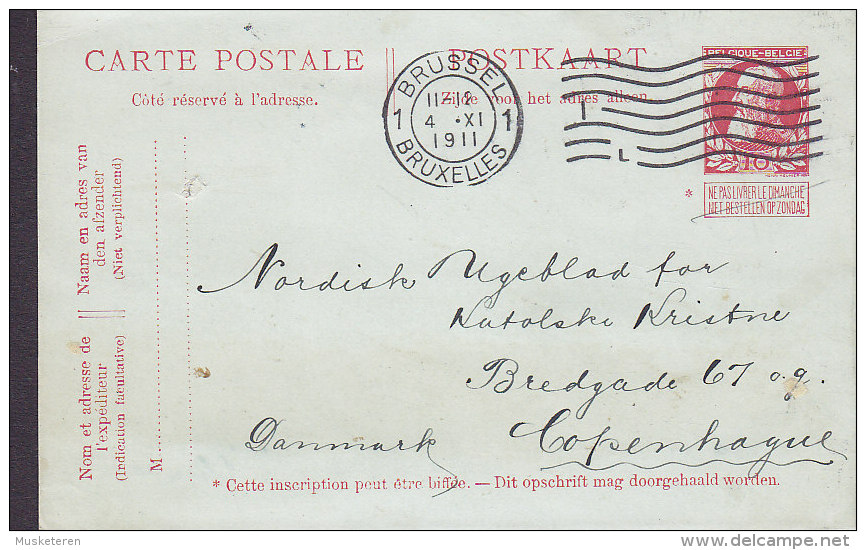 CARTE POSTALE
POSTKAART
Côté réservé à l'adresse.
Zijde voor het adres alleen.
BRUSSEL
1 4 ·XI 1
1911
BRUXELLES
T
L
BELGIQUE-BELGIË
10
* NE PAS LIVRER LE DIMANCHE
NIET BESTELLEN OP ZONDAG
Naam en adres van
den afzender
(Niet verplichtend)
Nom et adresse de
l'expéditeur
(Indication facultative)
M
Nordisk Ugeblad for
Katolske Kristne
Bredgade 67 o.g.
Danmark Copenhague
* Cette inscription peut être biffée. — Dit opschrift mag doorgehaald worden.
Musketeren
delcampe.net